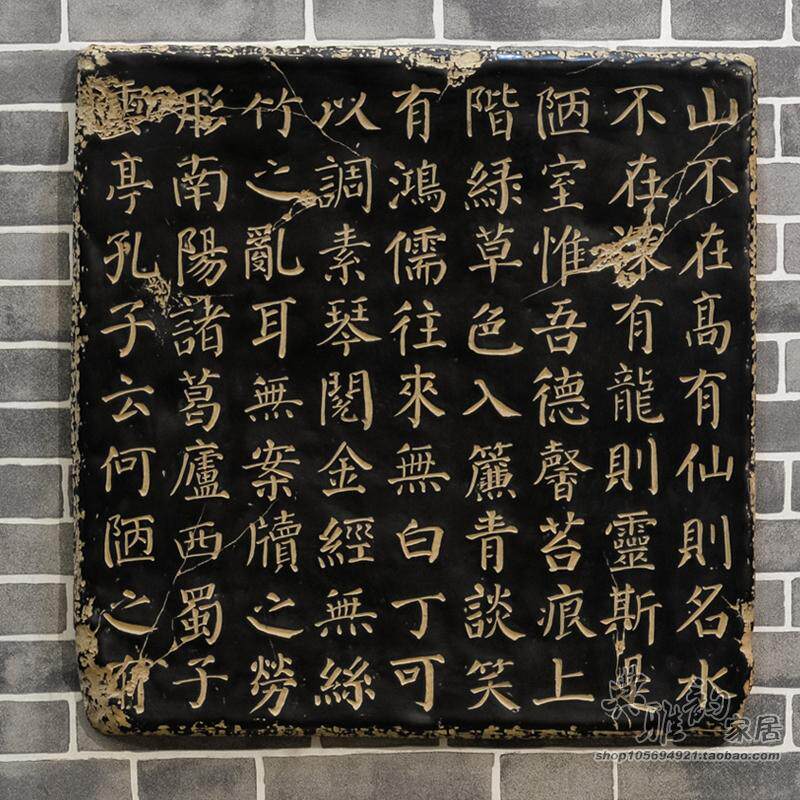 山不在高有仙則名水
不在深有龍則靈斯是
陋室惟吾德馨苔痕上
階綠草色入簾青談笑
有鴻儒往來無白丁可
以調素琴閱金經無絲
竹之亂耳無案牘之勞
形南陽諸葛廬西蜀子
雲亭孔子云何陋之有
典雅韵家居
shop105694921.taobao.com